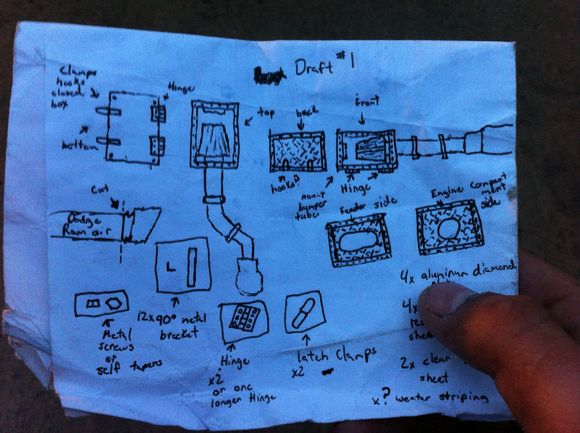 Draft #1
Clamps
hooks
closed
box
Hinge
bottom
top
back
front
hooks?
bumper
tube
Hinge
Fender side
Engine compart
ment
side
Cut
Dodge
Ram air
Metal
screws
or
self tapers
12x 90° metal
bracket
Hinge
x2
or one
longer Hinge
latch clamps
x2
4x aluminum diamond
4x
2x clear
sheet
x? weater striping